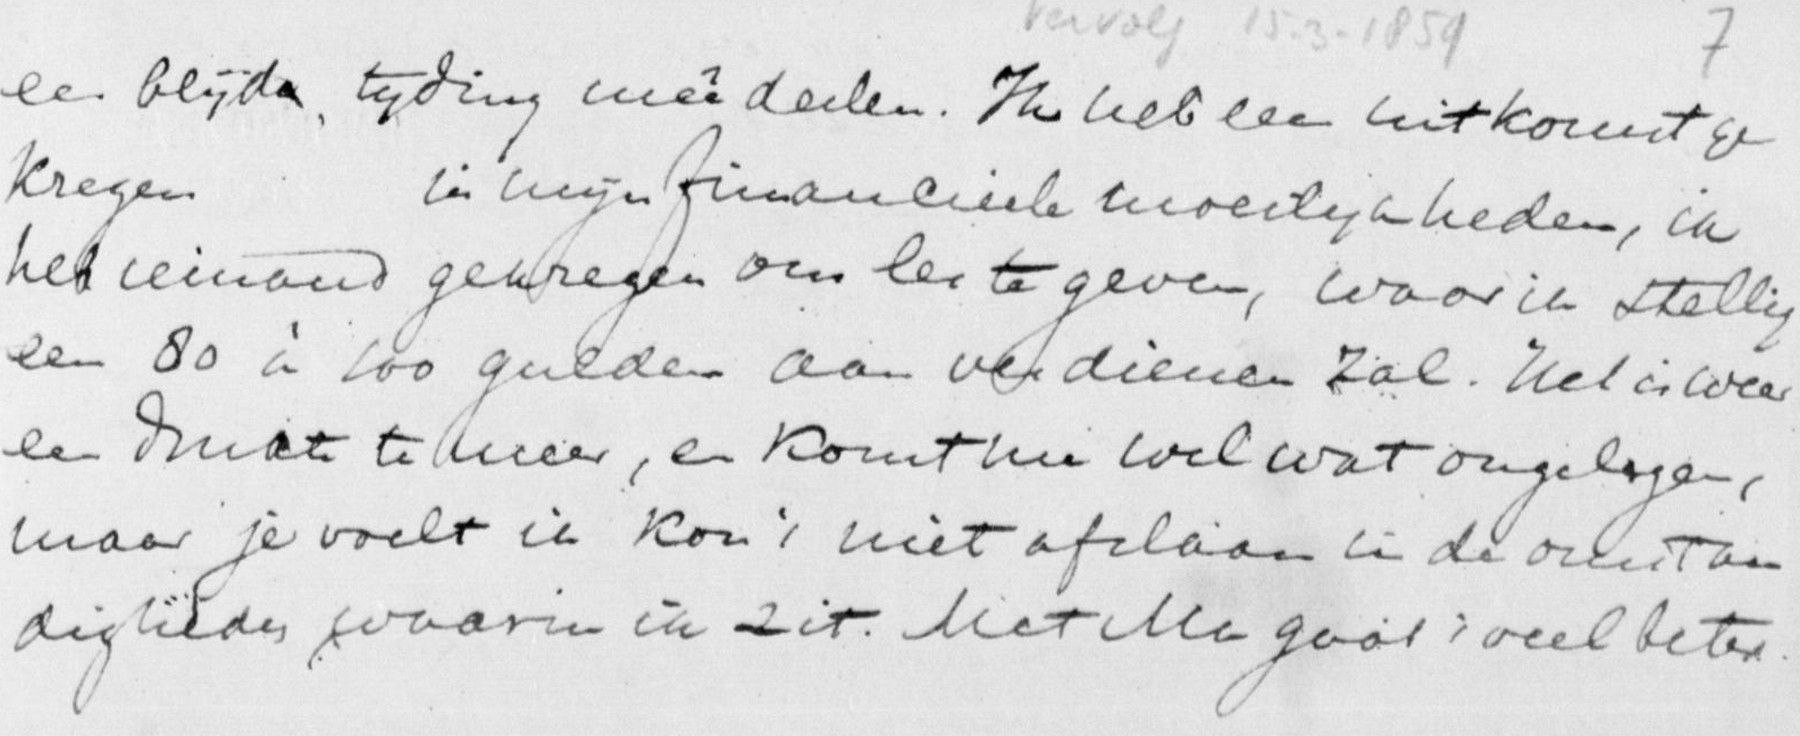 vervolg 15.3.1859 7
een blijde, tyding meê deelen. Ik heb een uitkomst ge
kregen in mijn financieele moeilijkheden, ik
heb iemand gekregen om les te geven, waar ik stellig
een 80 à 100 gulden aan verdienen zal. Het is weer
een drukte te meer, en komt me wel wat ongelegen,
maar je voelt ik kon 't niet afslaan in de omstan
digheden waarin ik zit. Met Ma gaat 't veel beter.